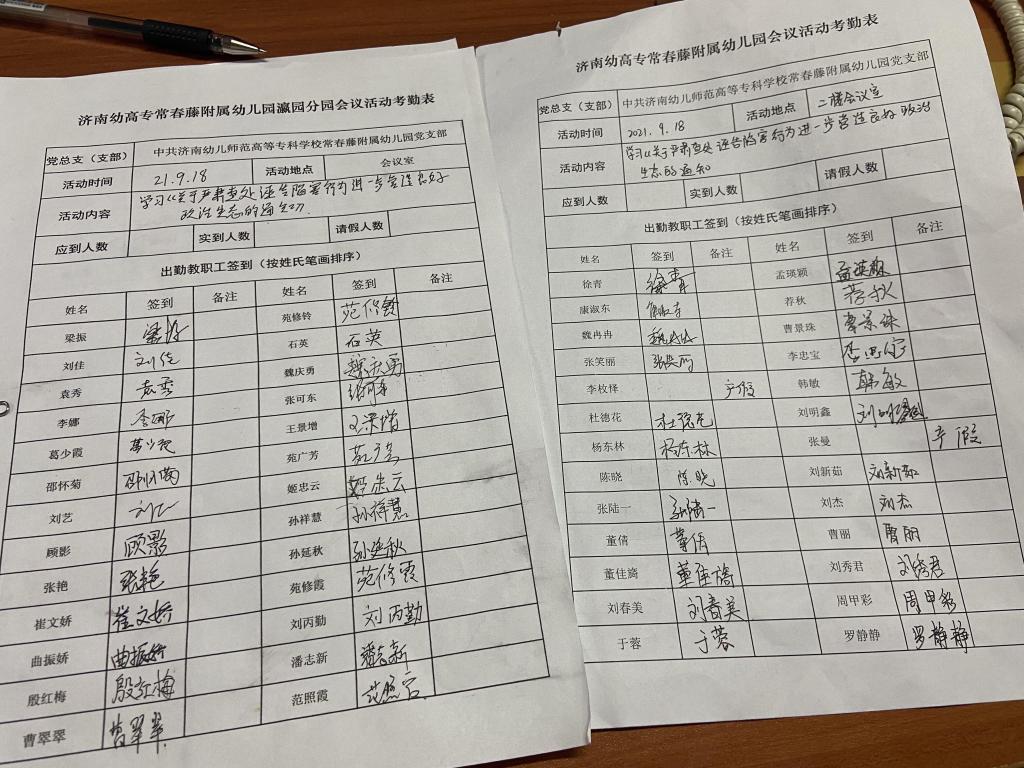 济南幼高专常春藤附属幼儿园瀛园分园会议活动考勤表
党总支（支部） 中共济南幼儿师范高等专科学校常春藤附属幼儿园党支部
活动时间 21.9.18 活动地点 会议室
活动内容 学习《关于严肃查处诬告陷害行为进一步营造良好
政治生态的通知》
应到人数 实到人数 请假人数
出勤教职工签到（按姓氏笔画排序）
姓名 签到 备注 姓名 签到 备注
梁振 梁振 苑修铃 苑修铃
刘佳 刘佳 石英 石英
袁秀 袁秀 魏庆勇 魏庆勇
李娜 李娜 张可东 张可东
葛少霞 葛少霞 王景增 王景增
邵怀菊 邵怀菊 苑广芳 苑广芳
刘艺 刘艺 姬忠云 姬忠云
顾影 顾影 孙祥慧 孙祥慧
张艳 张艳 孙延秋 孙延秋
崔文娇 崔文娇 苑修霞 苑修霞
曲振娇 曲振娇 刘丙勤 刘丙勤
殷红梅 殷红梅 潘志新 潘志新
曹翠翠 曹翠翠 范照霞 范照霞
济南幼高专常春藤附属幼儿园会议活动考勤表
党总支（支部） 中共济南幼儿师范高等专科学校常春藤附属幼儿园党支部
活动时间 2021.9.18 活动地点 二楼会议室
活动内容 学习《关于严肃查处诬告陷害行为进一步营造良好政治
生态的通知
应到人数 实到人数 请假人数
出勤教职工签到（按姓氏笔画排序）
姓名 签到 备注 姓名 签到 备注
徐青 徐青 孟瑛颖 孟瑛颖
康淑东 康淑东 荐秋 荐秋
魏冉冉 魏冉冉 曹景珠 曹景珠
张笑丽 张笑丽 李忠宝 李忠宝
李枚怿 产假 韩敏 韩敏
杜德花 杜德花 刘明鑫 刘明鑫
杨东林 杨东林 张曼 产假
陈晓 陈晓 刘新茹 刘新茹
张陆一 张陆一 刘杰 刘杰
董倩 董倩 曹丽 曹丽
董佳旖 董佳旖 刘秀君 刘秀君
刘春美 刘春美 周甲彩 周甲彩
于蓉 于蓉 罗静静 罗静静